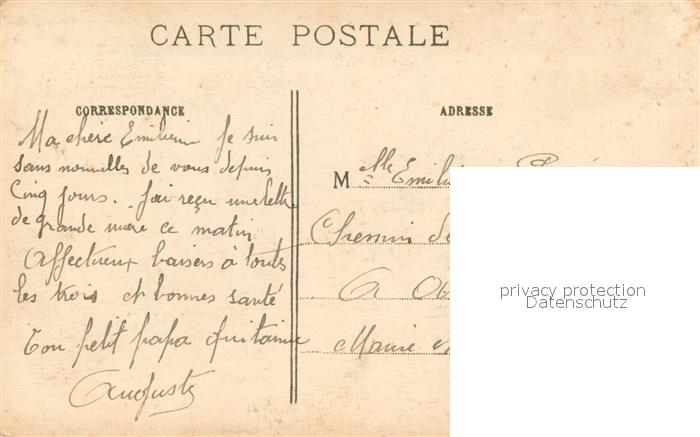 CARTE POSTALE
CORRESPONDANCE
Ma chère Emilienne Je suis
sans nouvelles de vous depuis
Cinq jours. J'ai reçu une lettre
de grande mère ce matin
Affectueux baisers à toutes
les trois et bonnes santé
Ton petit papa qui t'aime
Auguste
ADRESSE
Melle Emilie
Chemin de
A
Maine
privacy protection
Datenschutz